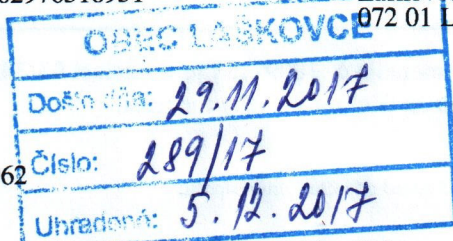 072 01 L
OBEC LAŠKOVCE
Došlo dňa: 29.11.2017
Číslo: 289/17
62
Uhradené: 5.12.2017